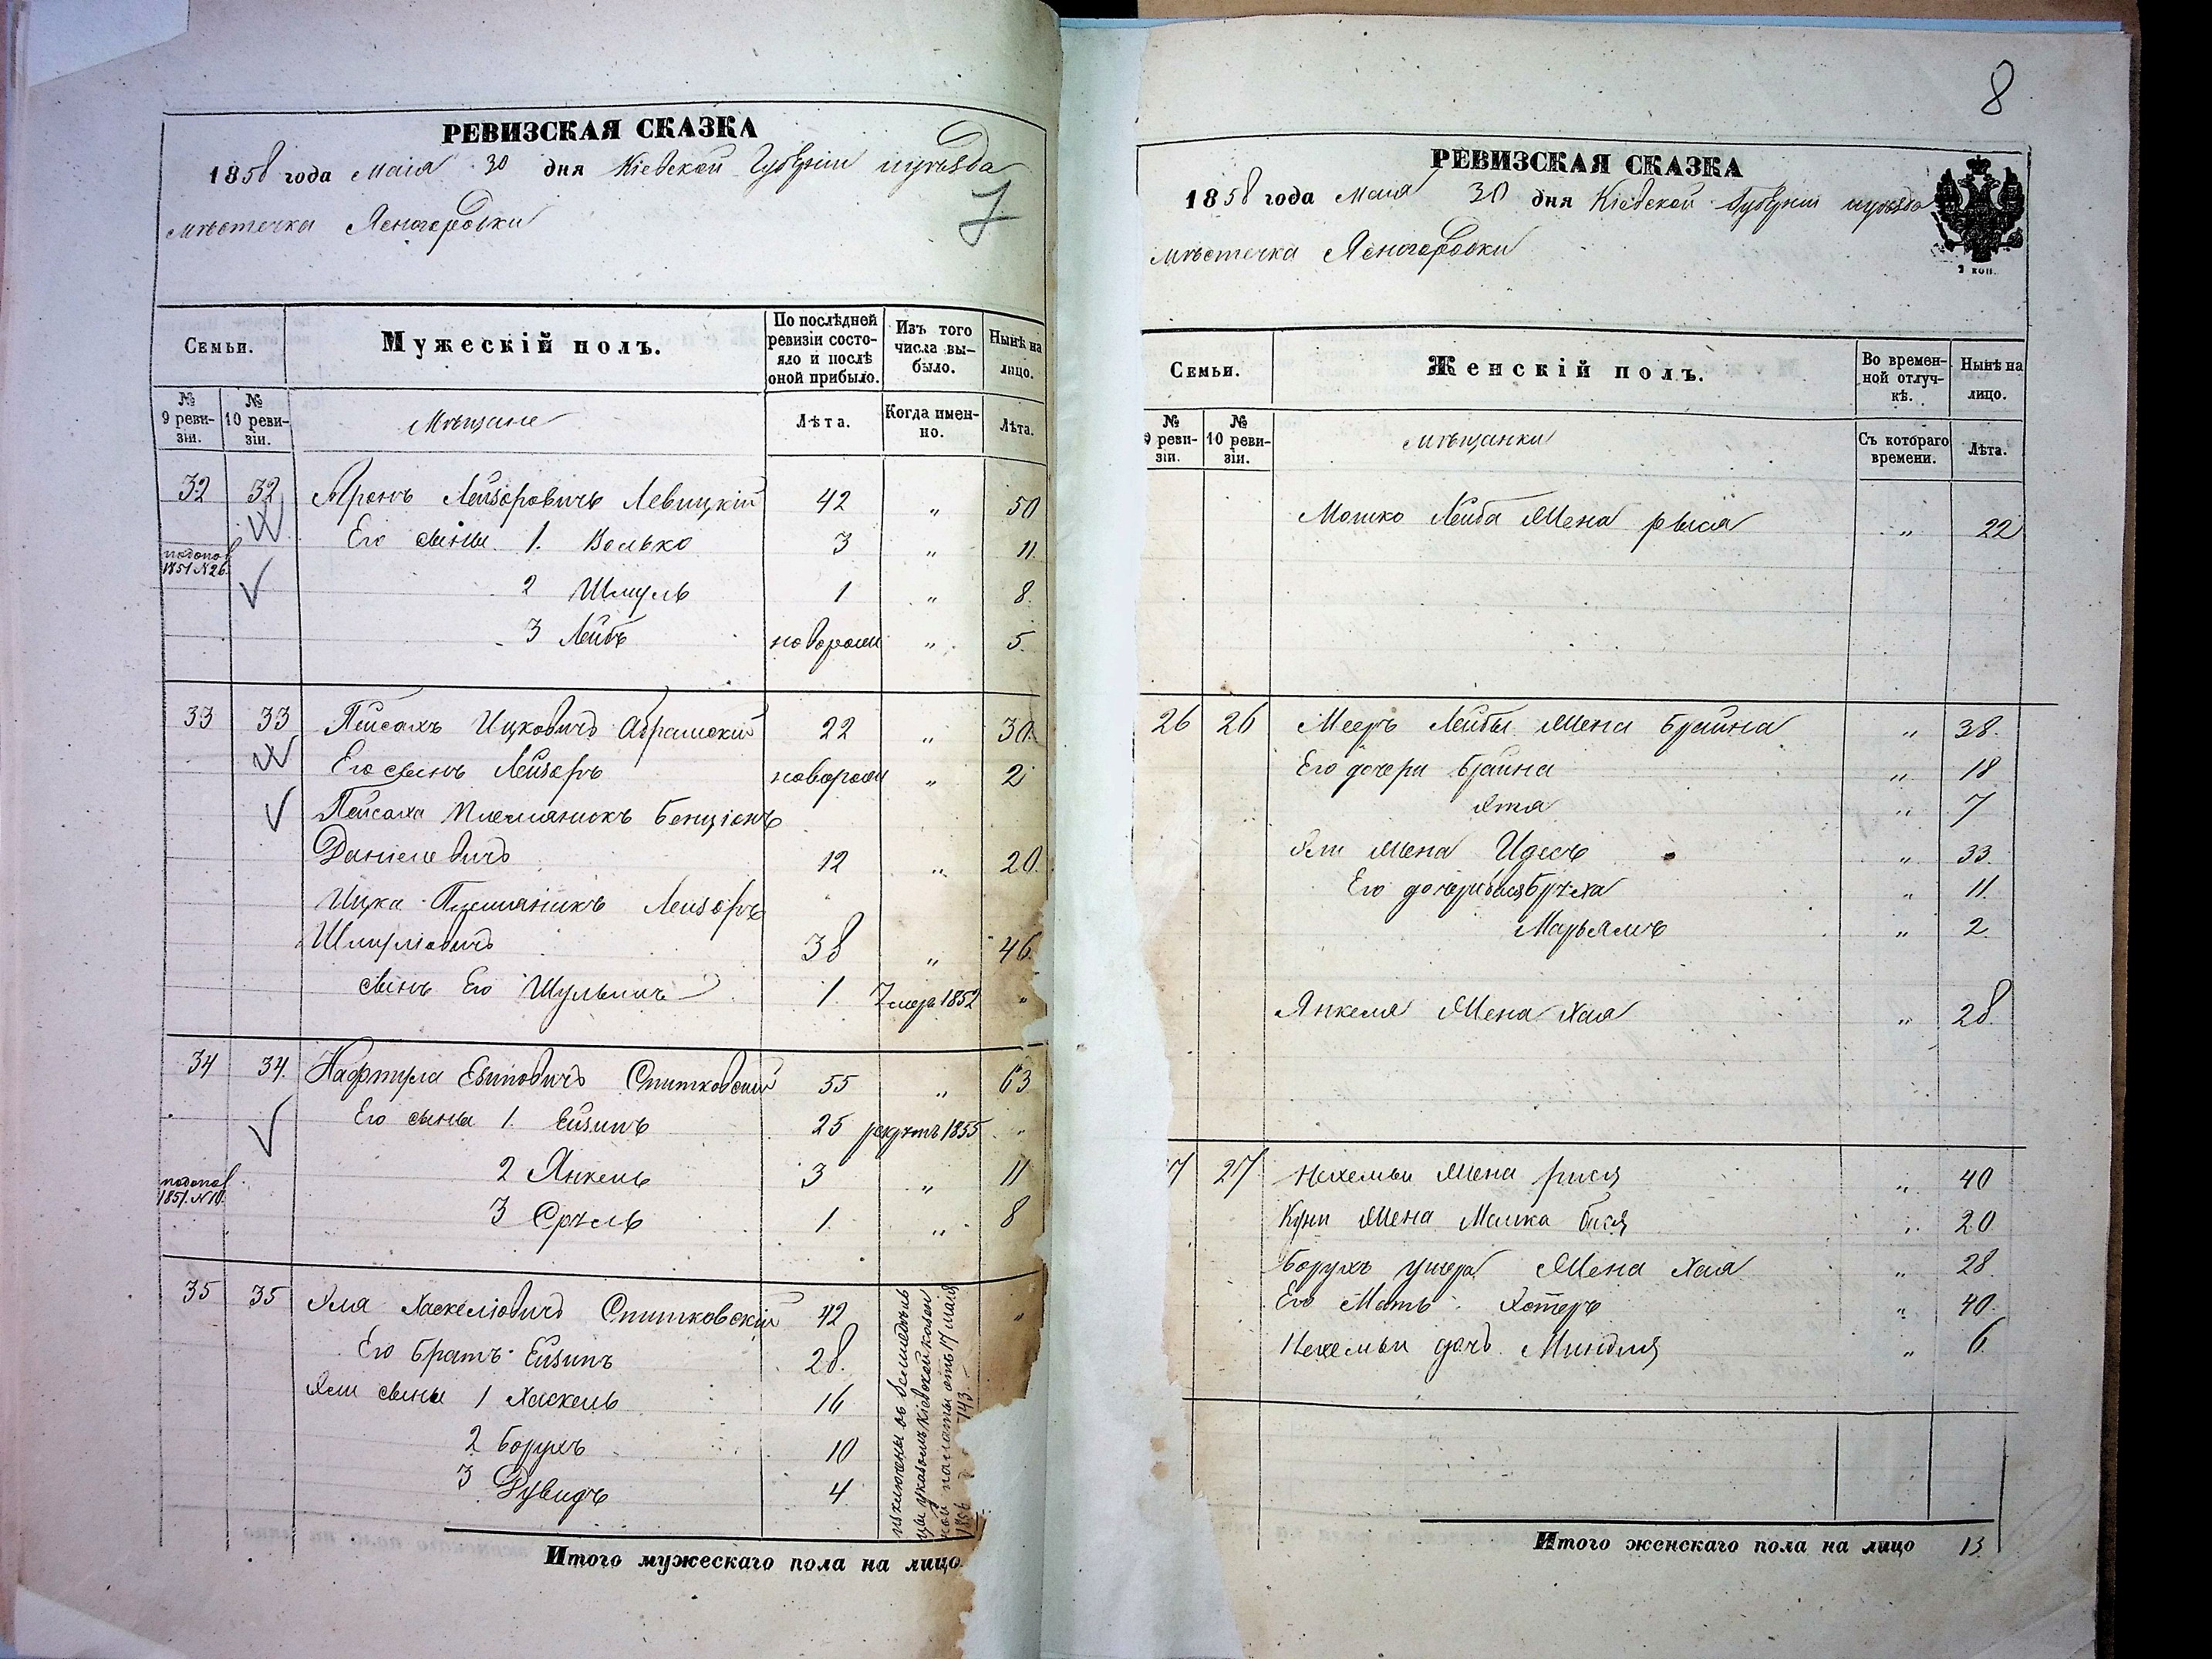 РЕВИЗСКАЯ СКАЗКА
1858 года Маія 30 дня Кіевской Губерніи уѣзда
мѣстечка Ясногородки
7
Семьи.
Мужескій полъ.
По послѣдней ревизіи состояло и послѣ оной прибыло.
Изъ того числа выбыло.
Нынѣ на лицо.
№ 9 ревизіи.
№ 10 ревизіи.
Мѣщане
Лѣта.
Когда именно.
Лѣта.
32 32 Аронъ Лейзоровичъ Левицкій 42 " 50
Его сыны 1. Волько 3 " 11.
1851 №26.
2 Шмуль 1 " 8.
3 Лейбъ новорож " 5.
33 33 Пейсахъ Ицковичъ Абрамскій 22 " 30.
Его сынъ Лейзоръ новорож " 2
Пейсаха Племянникъ Бенціонъ
Даніелевичъ 12 " 20.
Ицка Племяникъ Лейзоръ
Шмуліовичъ 38 " 46.
сынъ Его Шульимъ 1. умеръ 1852 "
34 34. Нафтула Евзиповичъ Спитковский 55 " 63
Его сыны 1. Ейзипъ 25 рекрутъ 1855 "
2 Янкель 3 " 11
1851. №10.
3 Сруль 1. " 8
35 35 Эля Хаскеліовичъ Спитковскій 42 "
Его братъ Ейзипъ 28.
Эли сыны 1 Хаскель 16
2 Борухъ 10
3 Дувидъ 4
исключены въ
указомъ Кіевской казен
ной палаты отъ 17 мая
1856 743.
Итого мужескаго пола на лицо
8
РЕВИЗСКАЯ СКАЗКА
1858 года Маія 30 дня Кіевской Губерніи уѣзда
мѣстечка Ясногородки
2 коп.
Семьи.
Женскій полъ.
Во временной отлучкѣ.
Нынѣ на лицо.
№ 9 ревизіи.
№ 10 ревизіи.
мѣщанки
Съ котораго времени.
Лѣта.
Мошко Лейба Жена рыся " 22
26 26 Мееръ Лейбы Жена Брайна " 38.
Его дочери Браина " 18
Эта " 7
Эли Жена Идесъ " 33.
Его дочери " 11.
Марьямъ " 2.
Янкеля Жена Хая " 28.
7 27 Нехемьи Жена рися " 40
Куни Жена Малка бася " 20
Борухъ ушера Жена Хая " 28
Его Мать Эстеръ " 40.
Нехемьи дочь Миндля " 6
Итого женскаго пола на лицо 13.